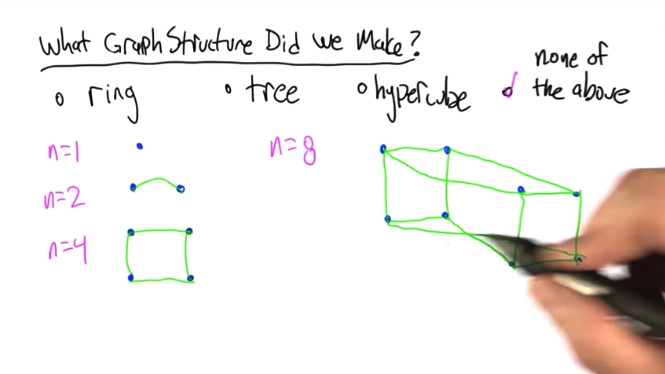 What Graph Structure Did We Make?
ring
tree
hypercube
none of
the above
n=1
n=2
n=4
n=8